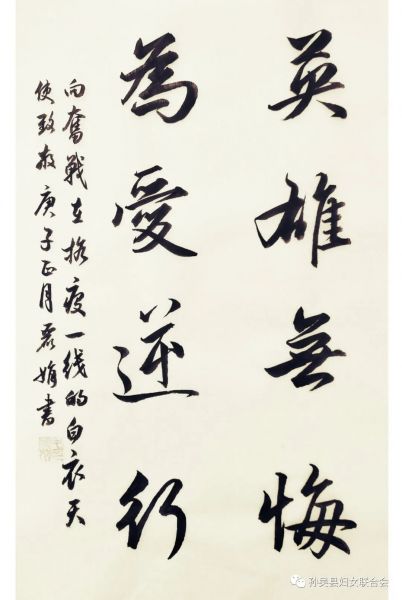 英雄無悔
為愛逆行
向奮戰在抗疫一线的白衣天
使致敬庚子正月君娟書
孙吴县妇女联合会